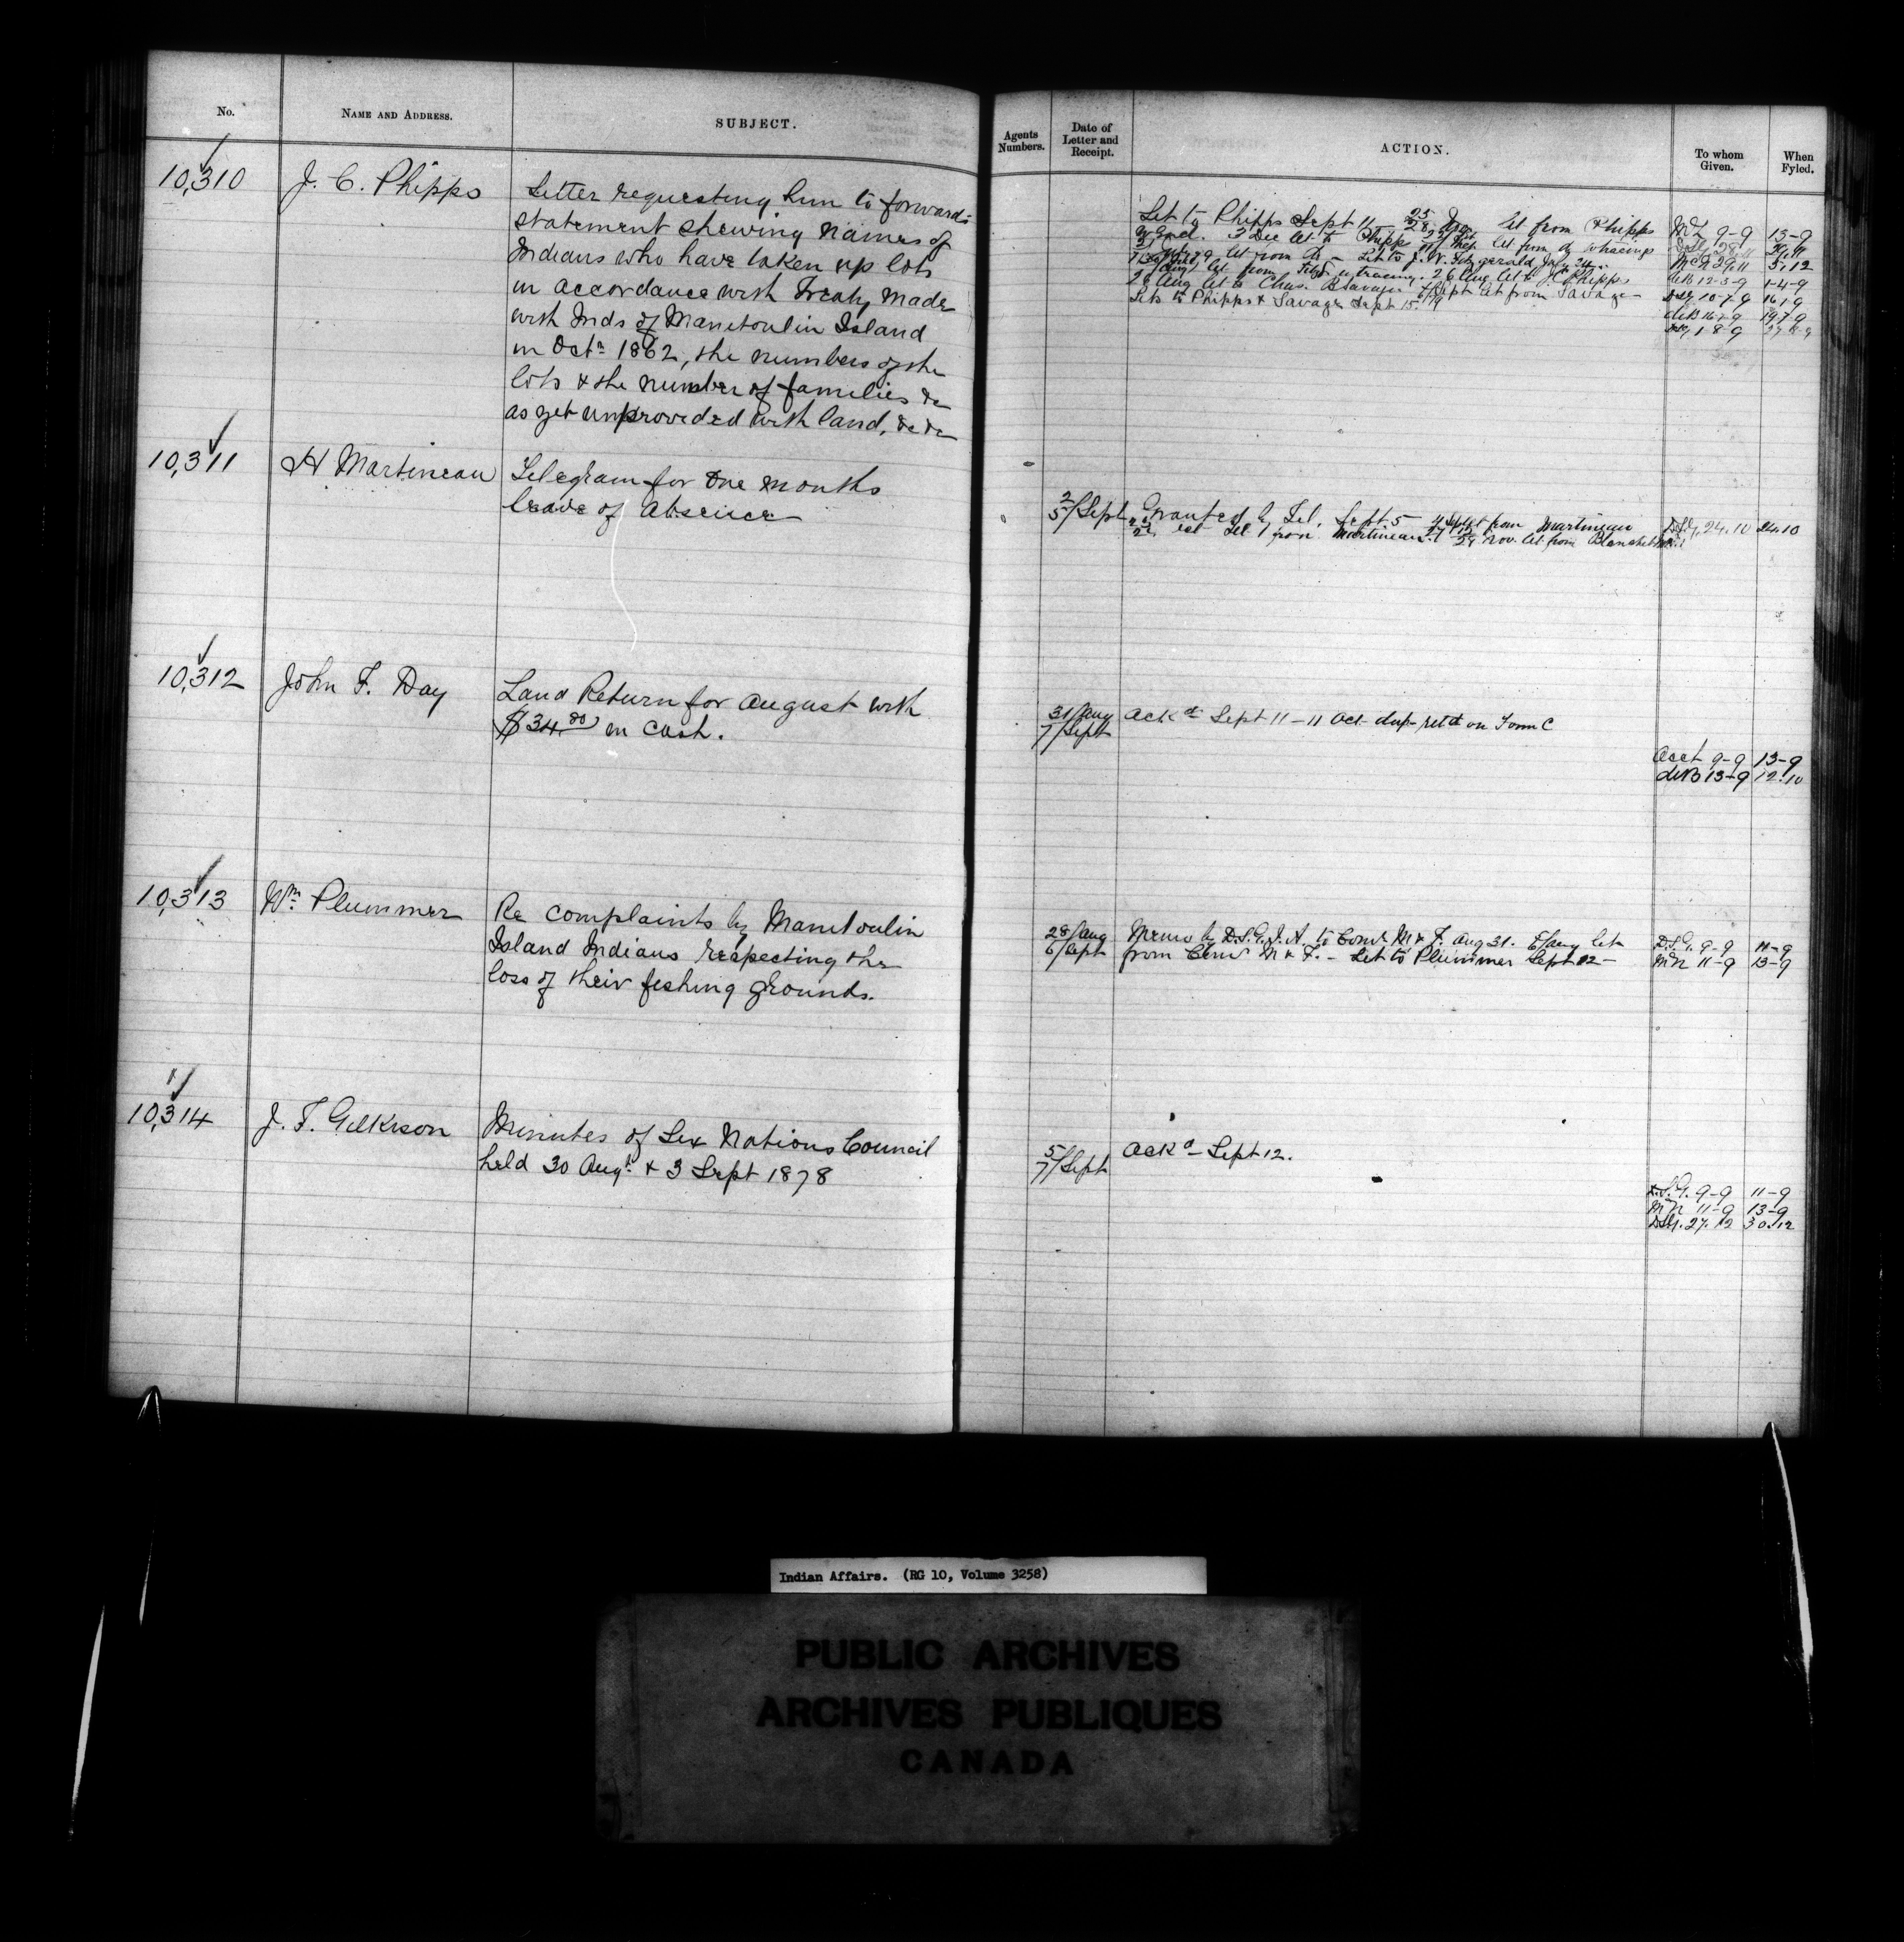 No.
NAME AND ADDRESS.
SUBJECT.
10,310
J. C. Phipps
Letter requesting him to forward
statement shewing names of
Indians who have taken up lots
in accordance with Treaty made
with Inds of Manitoulin Island
in Octr 1862, the numbers of the
lots & the number of families &c
as yet unprovided with land, &c &c
10,311
H Martineau
Telegram for one months
leave of absence
10,312
John F. Day
Land Return for August with
$34.00 in cash.
10,313
Wm Plummer
Re complaints by Manitoulin
Island Indians respecting the
loss of their fishing grounds.
10,314
J. T. Gilkison
Minutes of Six Nations Council
held 30 Augt & 3 Sept 1878
Agents Numbers.
Date of Letter and Receipt.
ACTION.
To whom Given.
When Fyled.
Let to Phipps Sept 11 Let from Phipps
2 Dec let to Phipps let from tracings
let from Let to J. W. Fitzgerald July 24
let from tracing. 26 Aug let to J C Phipps
26 Aug let to Chas. Savage Sept let from Savage
Lets to Phipps & Savage Sept 15.
9-9 13-9
29,11 5,12
12-3-9 1-4-9
10-7-9
16-7-9 19,7-9
1-8-9
2/5/Sept
Granted by Tel. Sept 5 from Martineau
from Martineau. Nov. let. from
D.S.G. 24.10 24.10
31/Aug
7/Sept
Ackd Sept 11 - 11 Oct dup retd on Form C
Acct 9-9 13-9
deB 13-9 12.10
28/Aug
6/Sept
Memo by D.S.G.I.A. to Comr M & F. Aug 31. let
from Comr M & F. - Let to Plummer Sept 12 -
D.S.G. 9-9 11-9
McN 11-9 13-9
5/7/Sept
Ackd Sept 12.
D.S.G. 9-9 11-9
McN 11-9 13-9
DSG. 27.12 30.12
Indian Affairs. (RG 10, Volume 3258)
PUBLIC ARCHIVES
ARCHIVES PUBLIQUES
CANADA